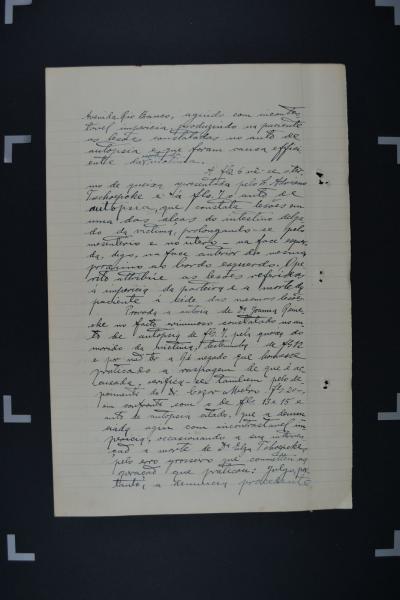 Avenida Rio Branco, agindo com incontes-
tavel impericia, produzindo na paciente
as lesões constatadas no auto de
autopsia e que foram causa effici-
ente da
A fls 6 vê-se o ter-
mo de queixa apresentada pelo Sr. Adriano
Tschopoke e a fls. 7 o auto de
autopsia, que constata lesões em
uma das alças do intestino delga-
do da victima, prolongando-se pelo
mesenterio e no utero - na face esquer-
da, digo, na face anterior do mesmo
proximo ao bordo esquerdo. O pe-
rito attribue as lesões referidas
á impericia da parteira e a morte da
paciente á séde das mesmas lesões.
Provada a autoria de Da Joanna
no facto criminoso constatado no au-
to de autopsia de fls. 7, pela queixa do
marido da victima, de fls 12
e por não ter a Ré negado que houvesse
praticado a raspagem de que é ac-
cusada, verifica-se tambem pelo de-
poimento do Dr. Cezar fls 20-
em confronto com o de fls 13 e 15 e
auto de autopsia citado, que a denun-
ciada agiu com incontrastavel im-
pericia, occasionando a sua interven-
ção a morte de Da Elza Tschopoke,
pelo erro grosseiro que commetteu na
operação que praticou: Julgo, por-
tanto, a denuncia procedente